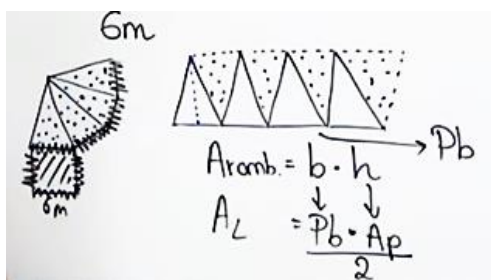 6m
6m
Pb
Aromb. = b · h
A_L = Pb · Ap
2